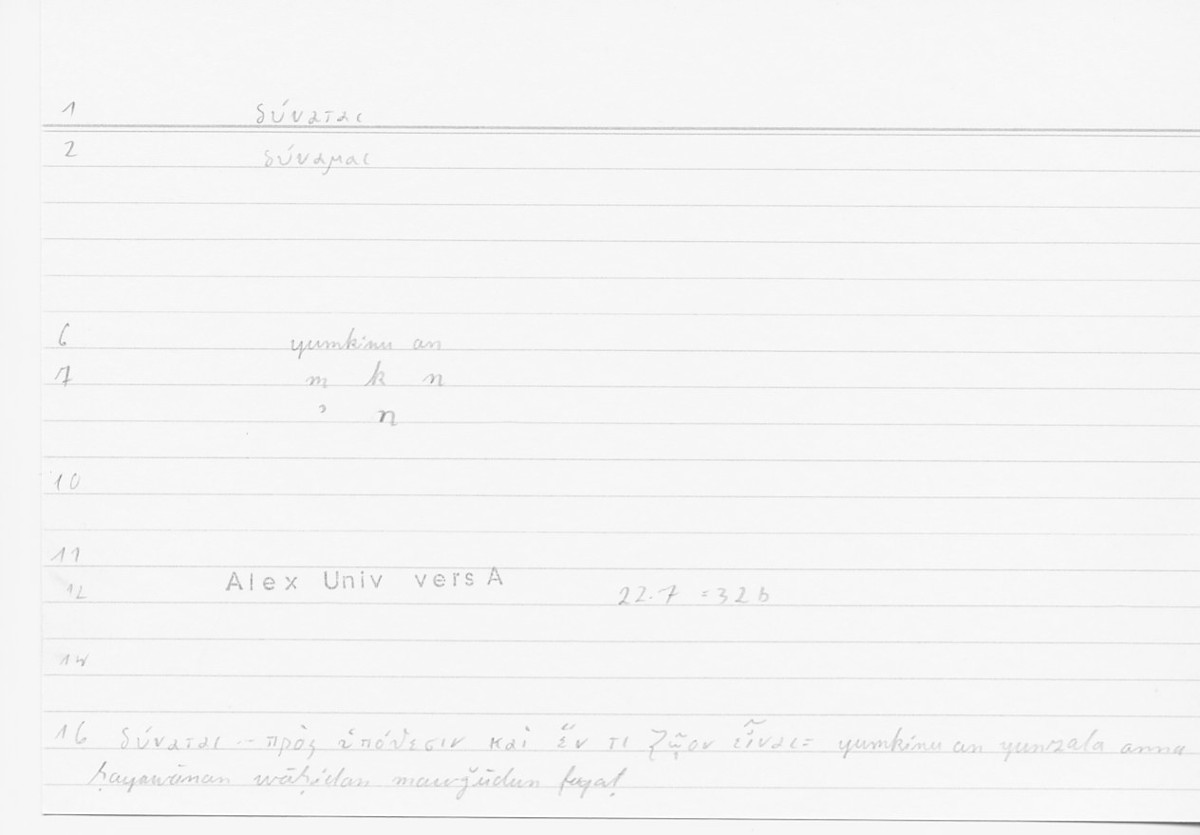 1 δύναται
2 δύναμαι
6 yumkinu an
7 m k n
ʾ n
10
11
Alex Univ vers A
12 22.7 = 32 b
14
16 δύναται -- πρὸς ὑπόθεσιν καὶ ἕν τι ζῷον εἶναι = yumkinu an yunzala anna
ḥayawānan wāḥidan mawǧūdun faqaṭ